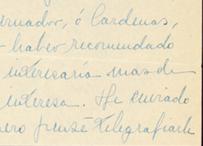 ernador, ó Cardenas,
haber recomendado
interesaría mas de
interesa. He enviado
ero pensé telegrafiarle